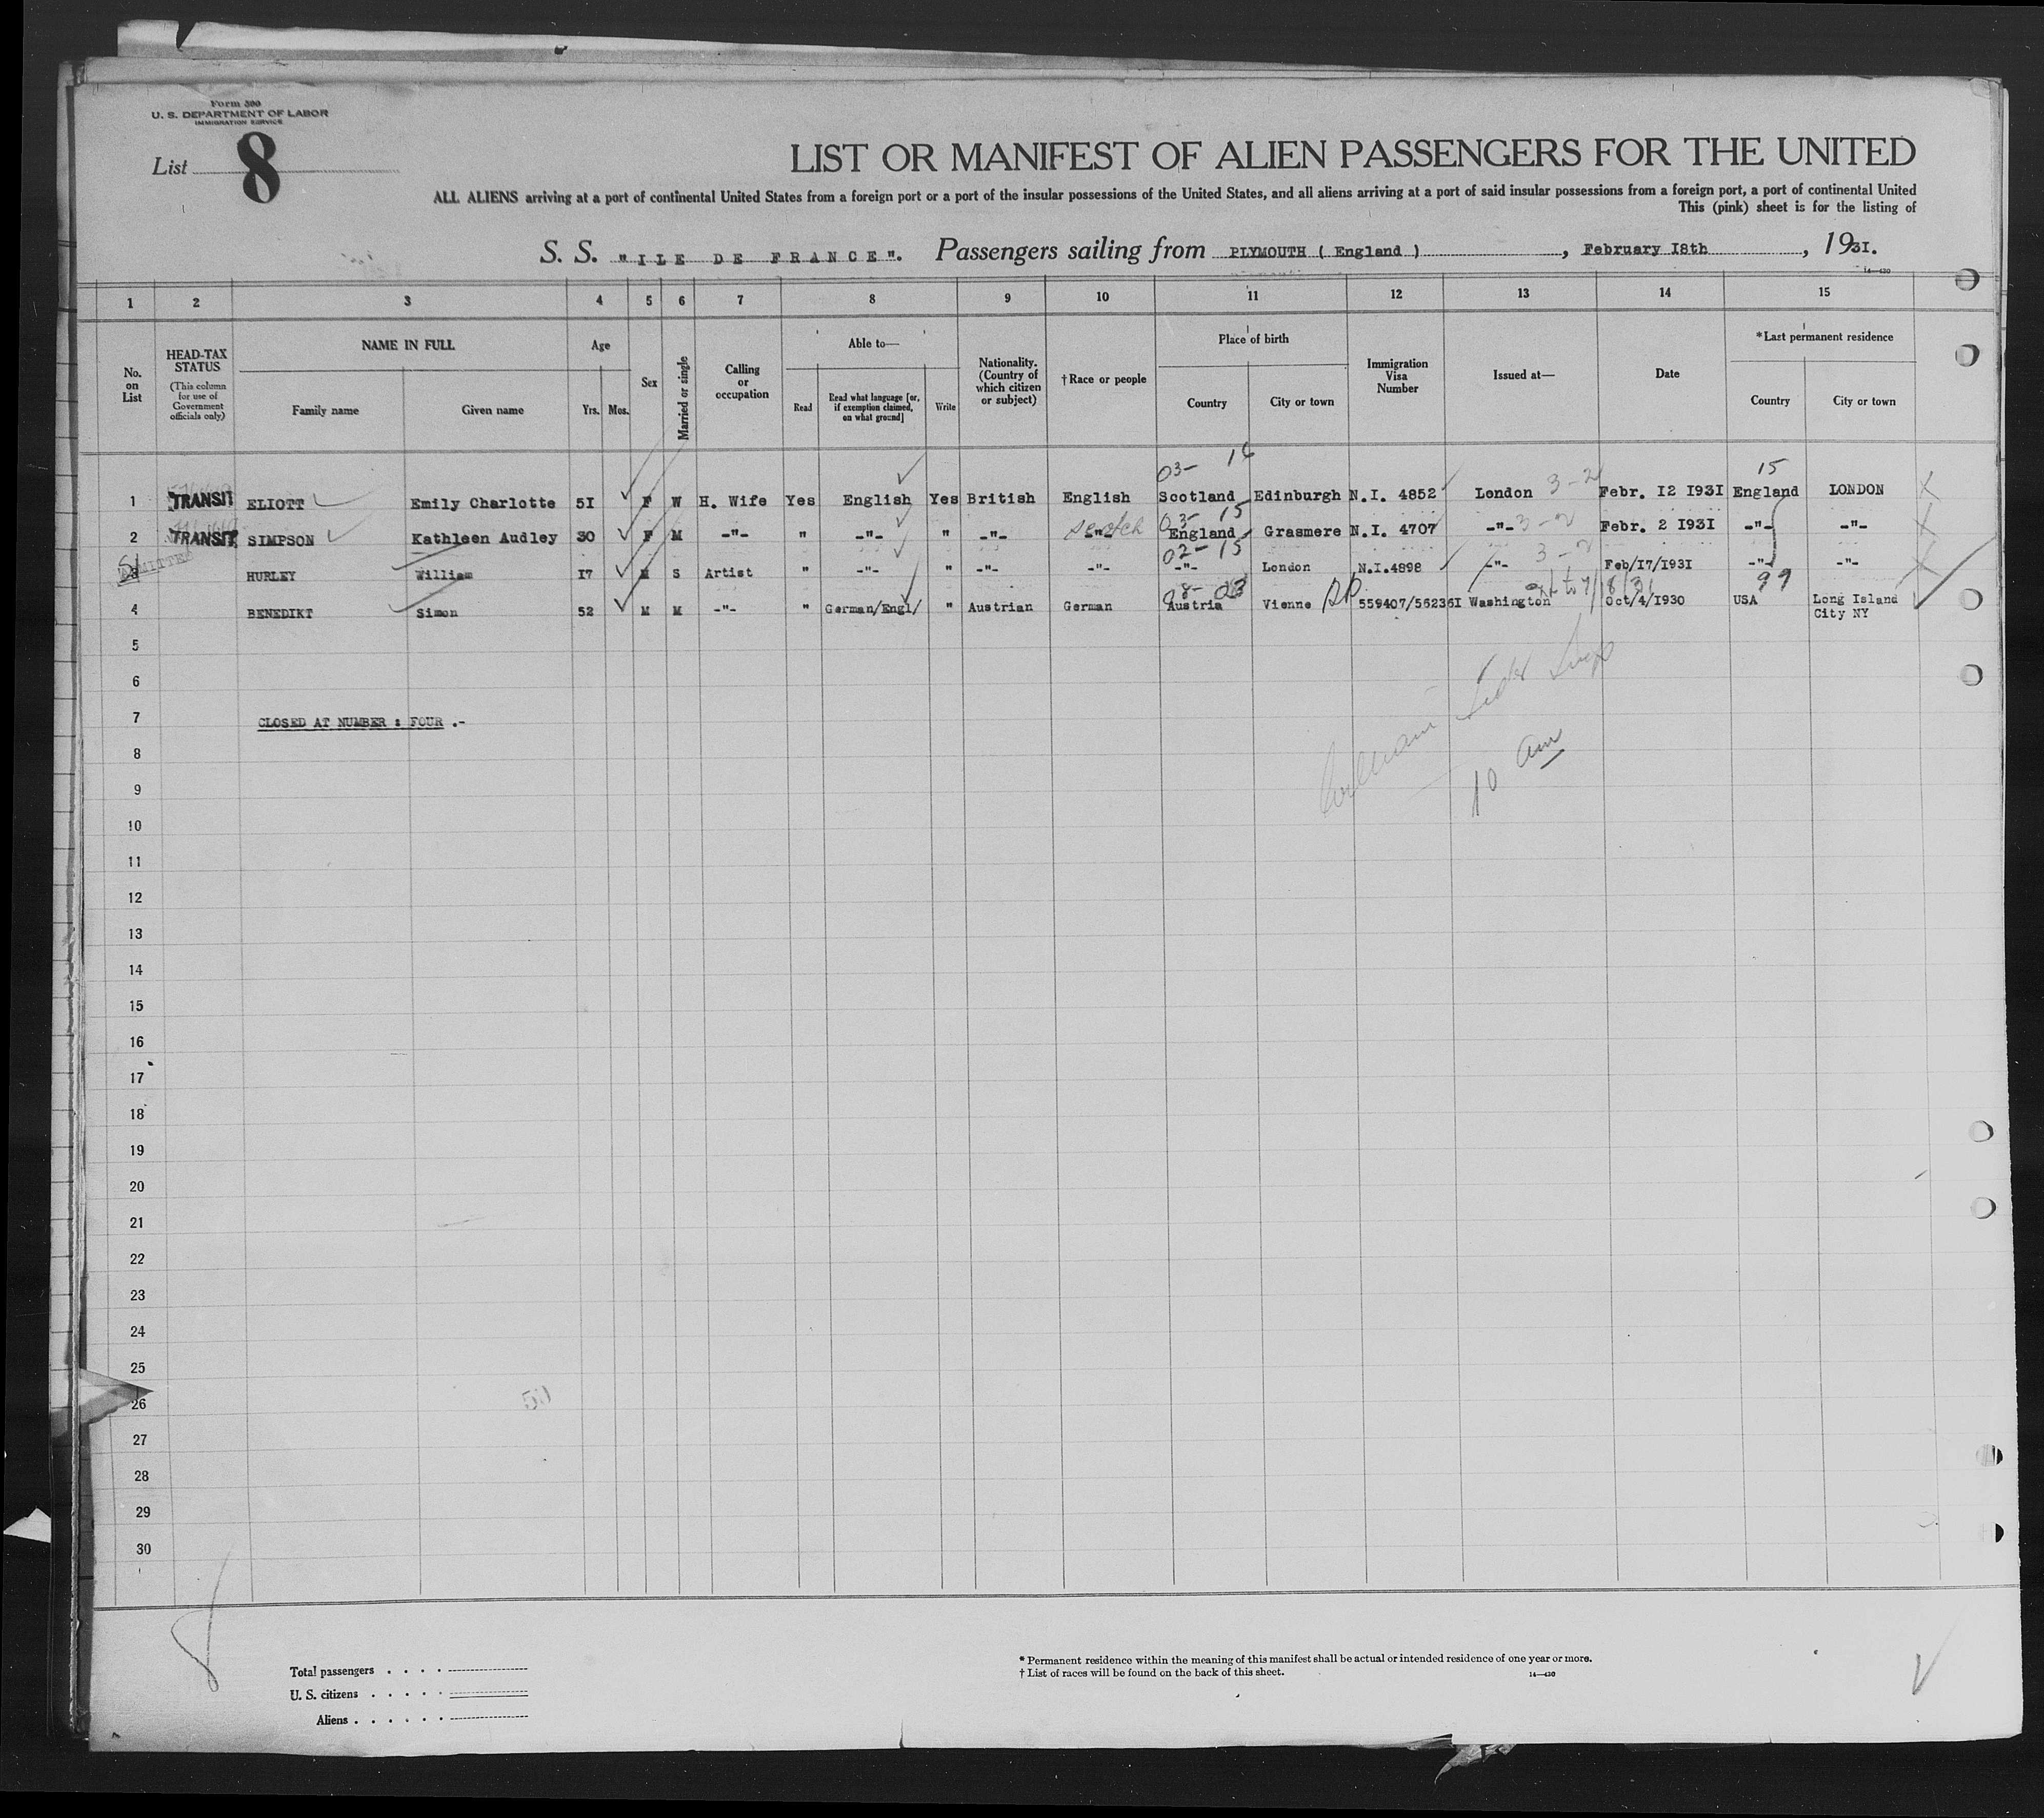 Form 500
U. S. DEPARTMENT OF LABOR
IMMIGRATION SERVICE
List 8
LIST OR MANIFEST OF ALIEN PASSENGERS FOR THE UNITED
ALL ALIENS arriving at a port of continental United States from a foreign port or a port of the insular possessions of the United States, and all aliens arriving at a port of said insular possessions from a foreign port, a port of continental United
This (pink) sheet is for the listing of
S. S. "ILE DE FRANCE". Passengers sailing from PLYMOUTH ( England ), February I8th, 193I.
14—430
1 2 3 4 5 6 7 8 9 10 11 12 13 14 15
No. on List
HEAD-TAX STATUS
(This column for use of Government officials only)
NAME IN FULL
Family name
Given name
Age
Yrs.
Mos.
Sex
Married or single
Calling or occupation
Able to—
Read
Read what language [or, if exemption claimed, on what ground]
Write
Nationality. (Country of which citizen or subject)
† Race or people
Place of birth
Country
City or town
Immigration Visa Number
Issued at—
Date
* Last permanent residence
Country
City or town
03- 16 15
1 TRANSIT ELIOTT Emily Charlotte 5I F W H. Wife Yes English Yes British English Scotland Edinburgh N.I. 4852 London 3-2 Febr. I2 I93I England LONDON
03- 15
2 TRANSIT SIMPSON Kathleen Audley 30 F M -"- " -"- " -"- -"- Scotch England Grasmere N.I. 4707 -"- 3-2 Febr. 2 I93I -"- -"-
02-15 3-2
3 ADMITTED HURLEY William I7 M S Artist " -"- " -"- -"- -"- London N.I.4898 -"- Feb/I7/I93I -"- -"-
08-03 RP 99
4 BENEDIKT Simon 52 M M -"- " German/Engl/ " Austrian German Austria Vienne 559407/56236I Washington Oct/4/I930 USA Long Island
City NY
5
6
7 CLOSED AT NUMBER : FOUR .-
10 am
8
9
10
11
12
13
14
15
16
17
18
19
20
21
22
23
24
25
26
27
28
29
30
8
Total passengers
U. S. citizens
Aliens
* Permanent residence within the meaning of this manifest shall be actual or intended residence of one year or more.
† List of races will be found on the back of this sheet.
14—430